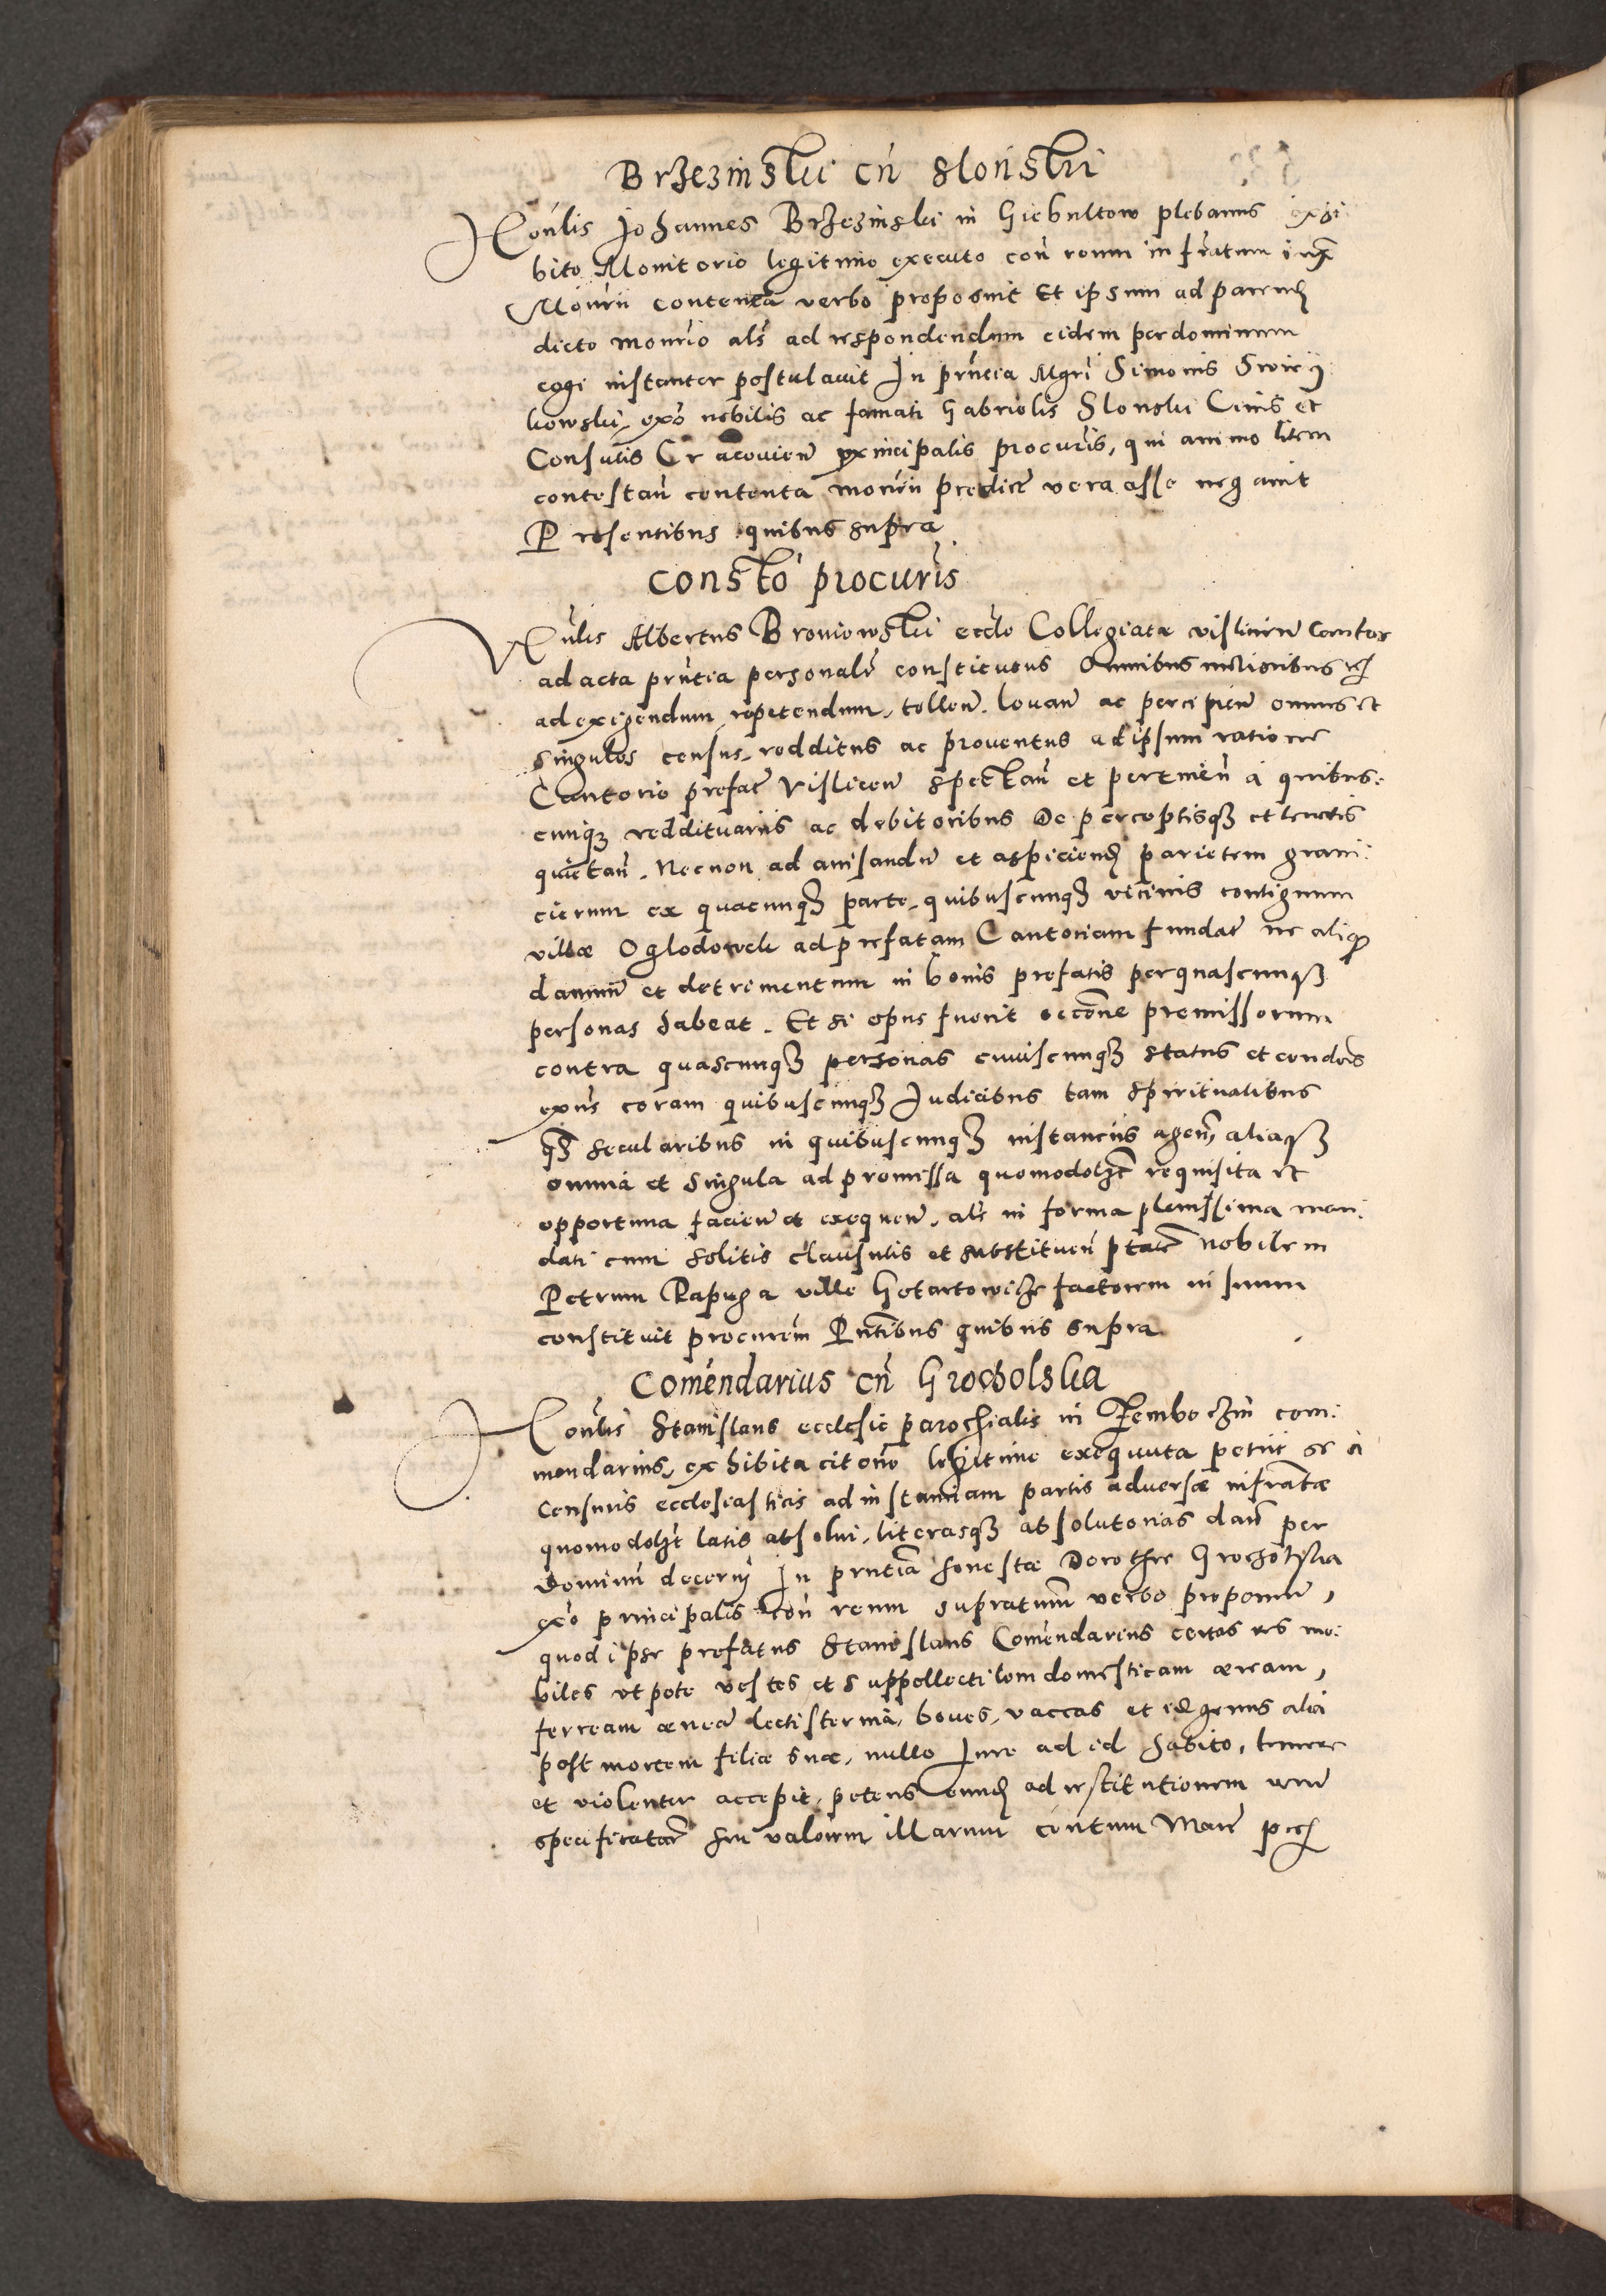 Brzezinski cũ Slonski
Honlis Johannes Brzezinski in Giebultow plebanus exhi:
bito Monitorio legitimo executo con reum infratum iux
Monrii contenta verbo proposuit Et ipsum ad parend
dicto monrio als ad respondendum eidem per dominum
cogi instanter postulavit In prntia Mgri Simonis
kowski, exo nobilis ac famati Gabrielis Slonski Civis et
Consulis Cracovien principalis procuris, qui animo litem
contestan contenta monrii predict vera esse negavit
Presentibus quibus supra
Constō procuris
Vnlis Albertus Broniowski eccle Collegiatæ vislicien Cantor
ad acta prntia personalr constitutus Omnibus melioribus
ad exigendum, repetendum, tollen. levan ac percipien omnes et
singulos census, redditus ac proventus ad ipsum ratione
Cantorie prefat Vislicen spectan et pertinen a quibus:
cunqz reddituariis ac debitoribus De perceptisqz et levatis
quietan. Necnon ad avisandu et aspiciend parietem grani:
cierum ex quacunqz parte, quibuscunqz vicinis contiguum
villæ Oglodowek ad prefatam Cantoriam fundat ne aliqd
damnũ et detrimentum in bonis prefatis per quascunqz
personas habeat. Et si opus fuerit occōne premissorum
contra quascunqz personas cuiuscunqz status et condois
exñs coram quibuscunqz Judicibus tam spiritualibus
qz secularibus in quibuscunqz instanciis agen, aliaqz
omnia et singula ad premissa quomodolzt requisita et
opportuna facien et exequen, als in forma plenissima man:
dati cum solitis clausulis et substituen ptate Nobilem
Petrum Rapuga ville factorem in suum
constituit procurem Pntibus quibus supra
Comendarius cn Grocholska
Honlis Stanislaus ecclesie parochialis in com:
mendarius, exhibita citone legitime exequuta petiit se a
Censuris ecclesiasticis ad instantiam partis adversæ infratæ
quomodolzt latis absolvi, literasqz absolutorias dari per
Dominũ decerni In prntia honestæ Dorothee Grocholska
exo principalis con reum supratum verbo proponen,
quod ipse prefatus Stanislaus Comendarius certas res mo:
biles utpote vestes et suppellectilem domesticam æream,
ferream æneã lectisternia, boves, vaccas et id genus alia
post mortem filiæ suæ, nullo Jure ad id habito, temere
et violenter accepit, petens eund ad restitutionem rerum
specificatar seu valorem illarum centum Marc